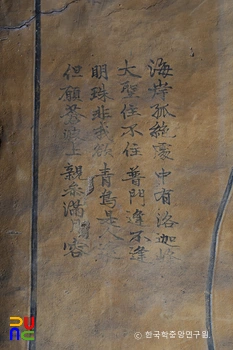 海岸孤絶處 中有洛迦峰
大聖住不住 普門逢不逢
明珠非我欲 青鳥是
但願蒼波上 親叅滿月容
ⓒ 한국학중앙연구원